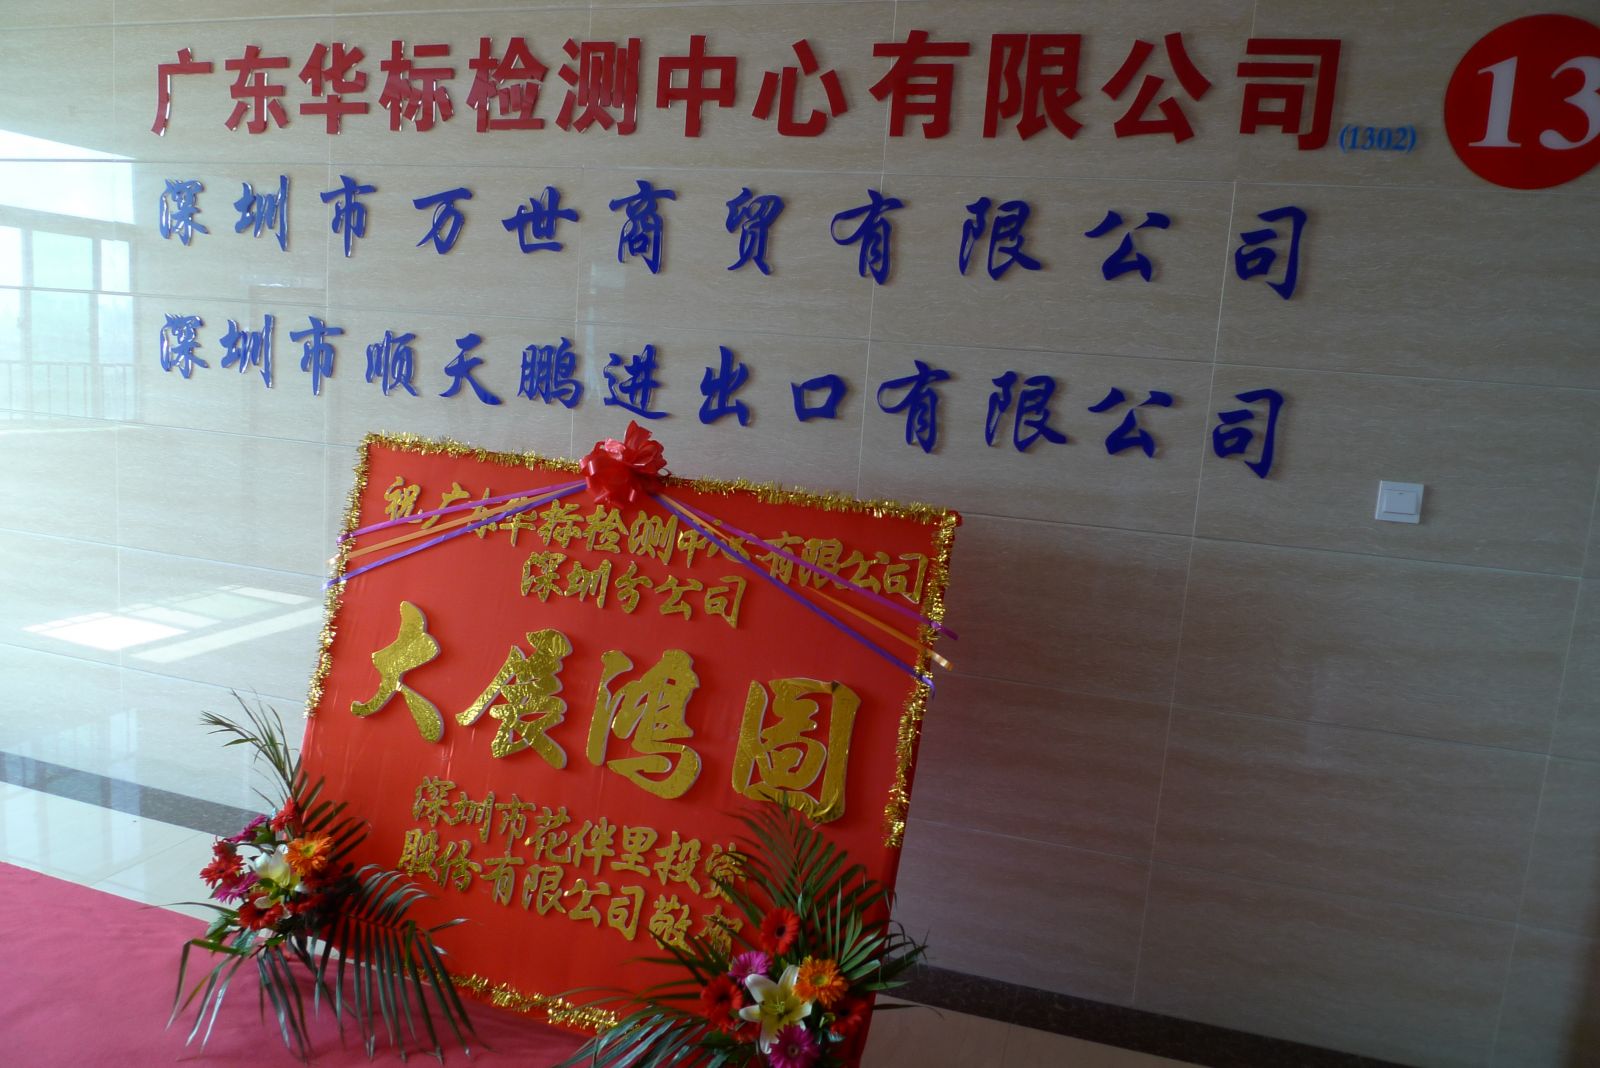 广东华标检测中心有限公司(1302)
13
深圳市万世商贸有限公司
深圳市顺天鹏进出口有限公司
祝广东华标检测中心有限公司
深圳分公司
大展鸿图
深圳市花伴里投资
股份有限公司敬